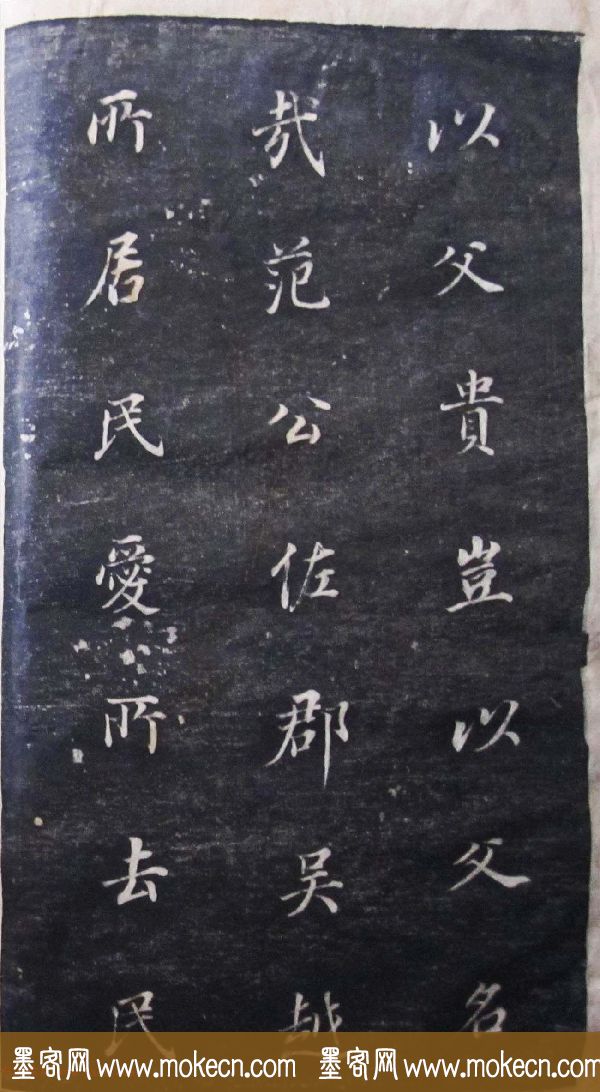 以父貴豈以父名
哉范公佐郡吴越
所居民愛所去民
墨客网 www.mokecn.com 墨客网 www.mokecn.com